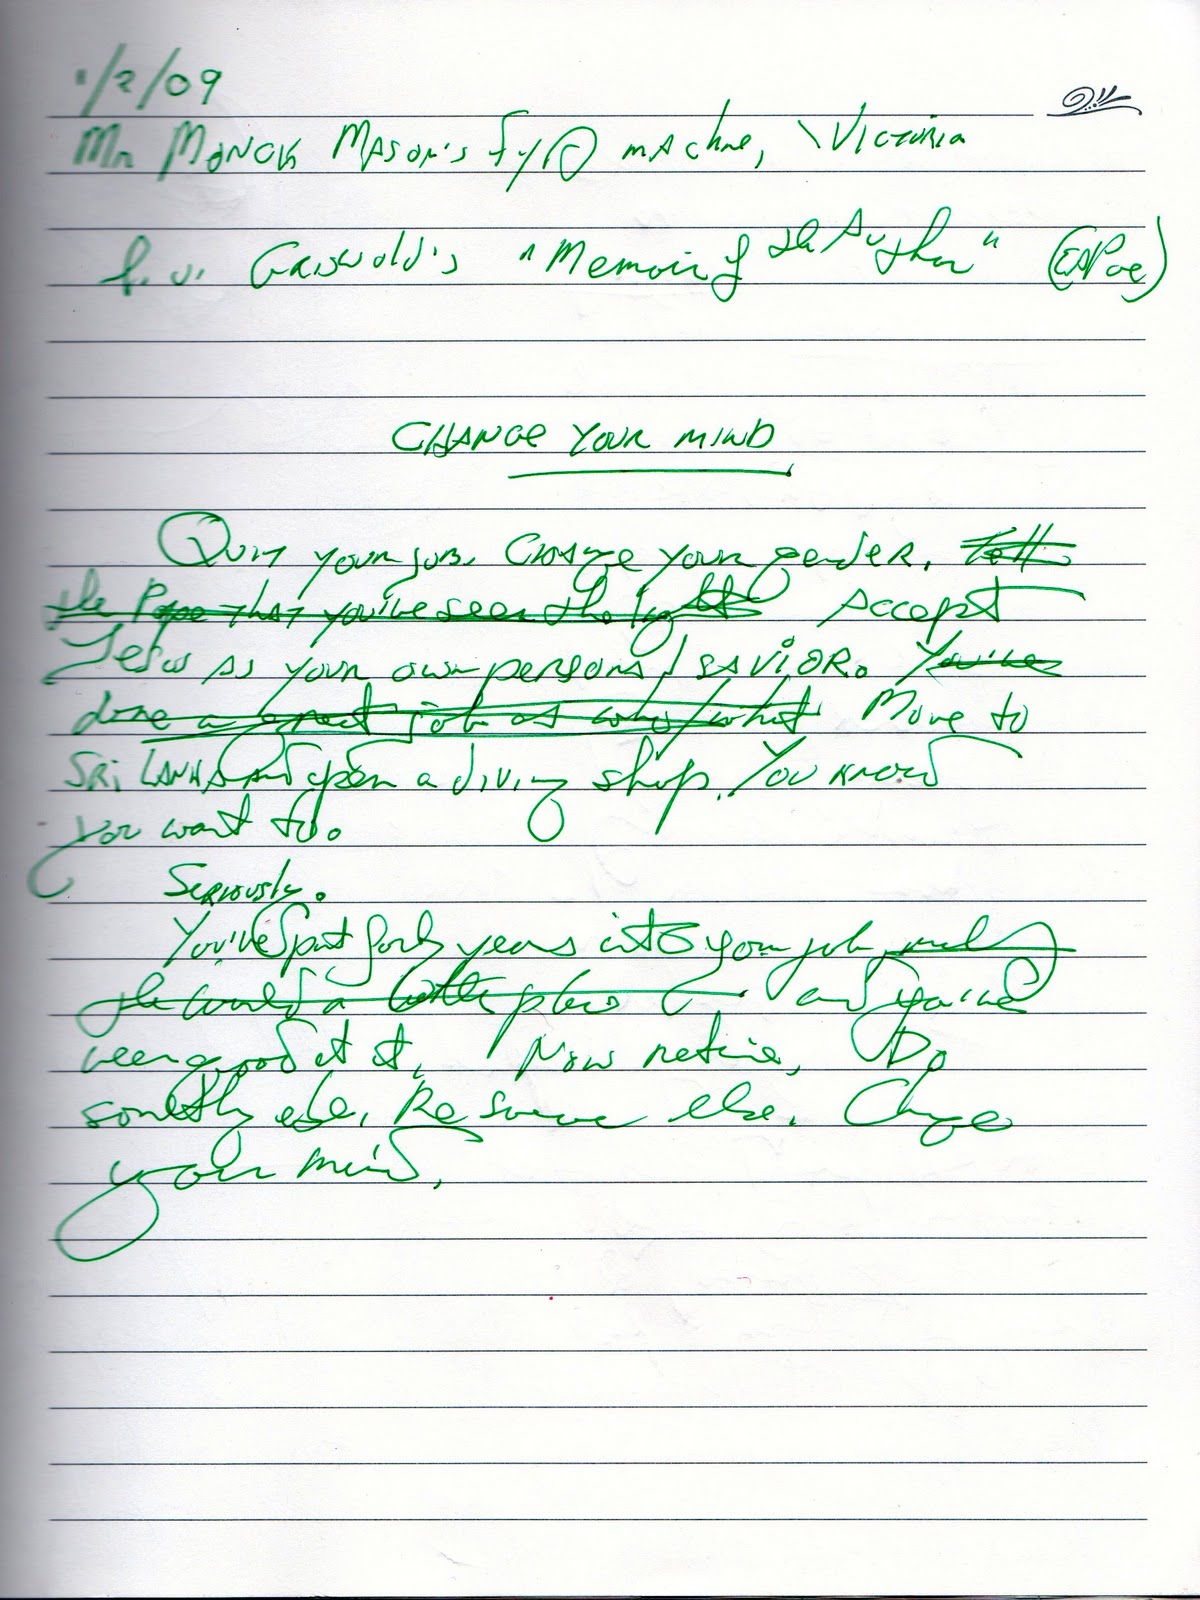 1/2/09
Mr Monck Mason's Flying machine, Victoria
Griswold's "Memoir of the Author" (EAPoe)
CHANGE YOUR MIND
Quit your job. Change your gender. Tell
the Pope that you've seen the light Accept
Jesus as your own personal savior. You've
done a great job at who/what Move to
Sri Lanka and open a diving shop. You know
you want to.
Seriously.
You've spent forty years into your job,
the world a better place and you've
been good at it. Now retire, Do
something else. Be someone else. Change
your mind.